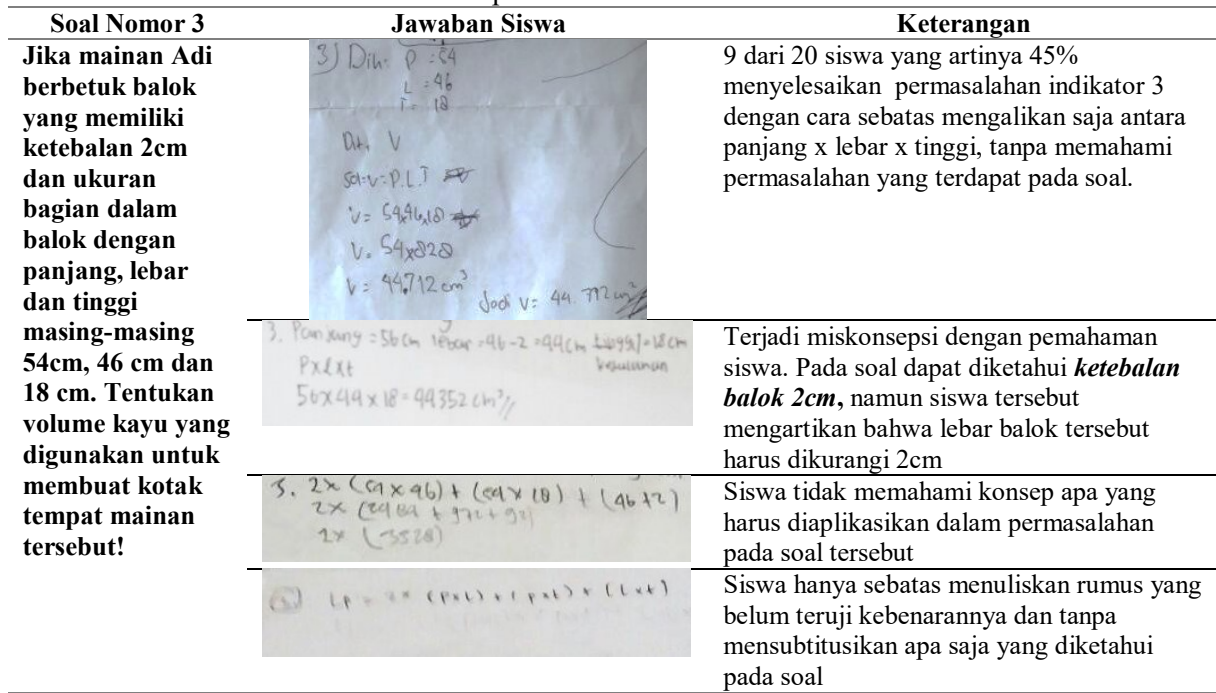 Soal Nomor 3 Jawaban Siswa Keterangan
Jika mainan Adi
berbetuk balok
yang memiliki
ketebalan 2cm
dan ukuran
bagian dalam
balok dengan
panjang, lebar
dan tinggi
masing-masing
54cm, 46 cm dan
18 cm. Tentukan
volume kayu yang
digunakan untuk
membuat kotak
tempat mainan
tersebut!
3) Dik: P : 54
L : 46
T : 18
Dit. V
Sol: V: P.L.T
V= 54x46x18
V= 54x828
V= 44.712 cm³
Jadi V= 44.712 cm³
9 dari 20 siswa yang artinya 45%
menyelesaikan permasalahan indikator 3
dengan cara sebatas mengalikan saja antara
panjang x lebar x tinggi, tanpa memahami
permasalahan yang terdapat pada soal.
3. Panjang = 56 cm lebar = 46-2 = 44cm tinggi = 18 cm
Pxlxt
56x44x18 = 44352 cm³//
Terjadi miskonsepsi dengan pemahaman
siswa. Pada soal dapat diketahui ketebalan
balok 2cm, namun siswa tersebut
mengartikan bahwa lebar balok tersebut
harus dikurangi 2cm
3. 2x (54x46) + (54x18) + (46+2)
2x (2484 + 972 + 92)
2x (3528)
Siswa tidak memahami konsep apa yang
harus diaplikasikan dalam permasalahan
pada soal tersebut
Lp = 2x (pxl) + (pxt) + (lxt)
Siswa hanya sebatas menuliskan rumus yang
belum teruji kebenarannya dan tanpa
mensubtitusikan apa saja yang diketahui
pada soal